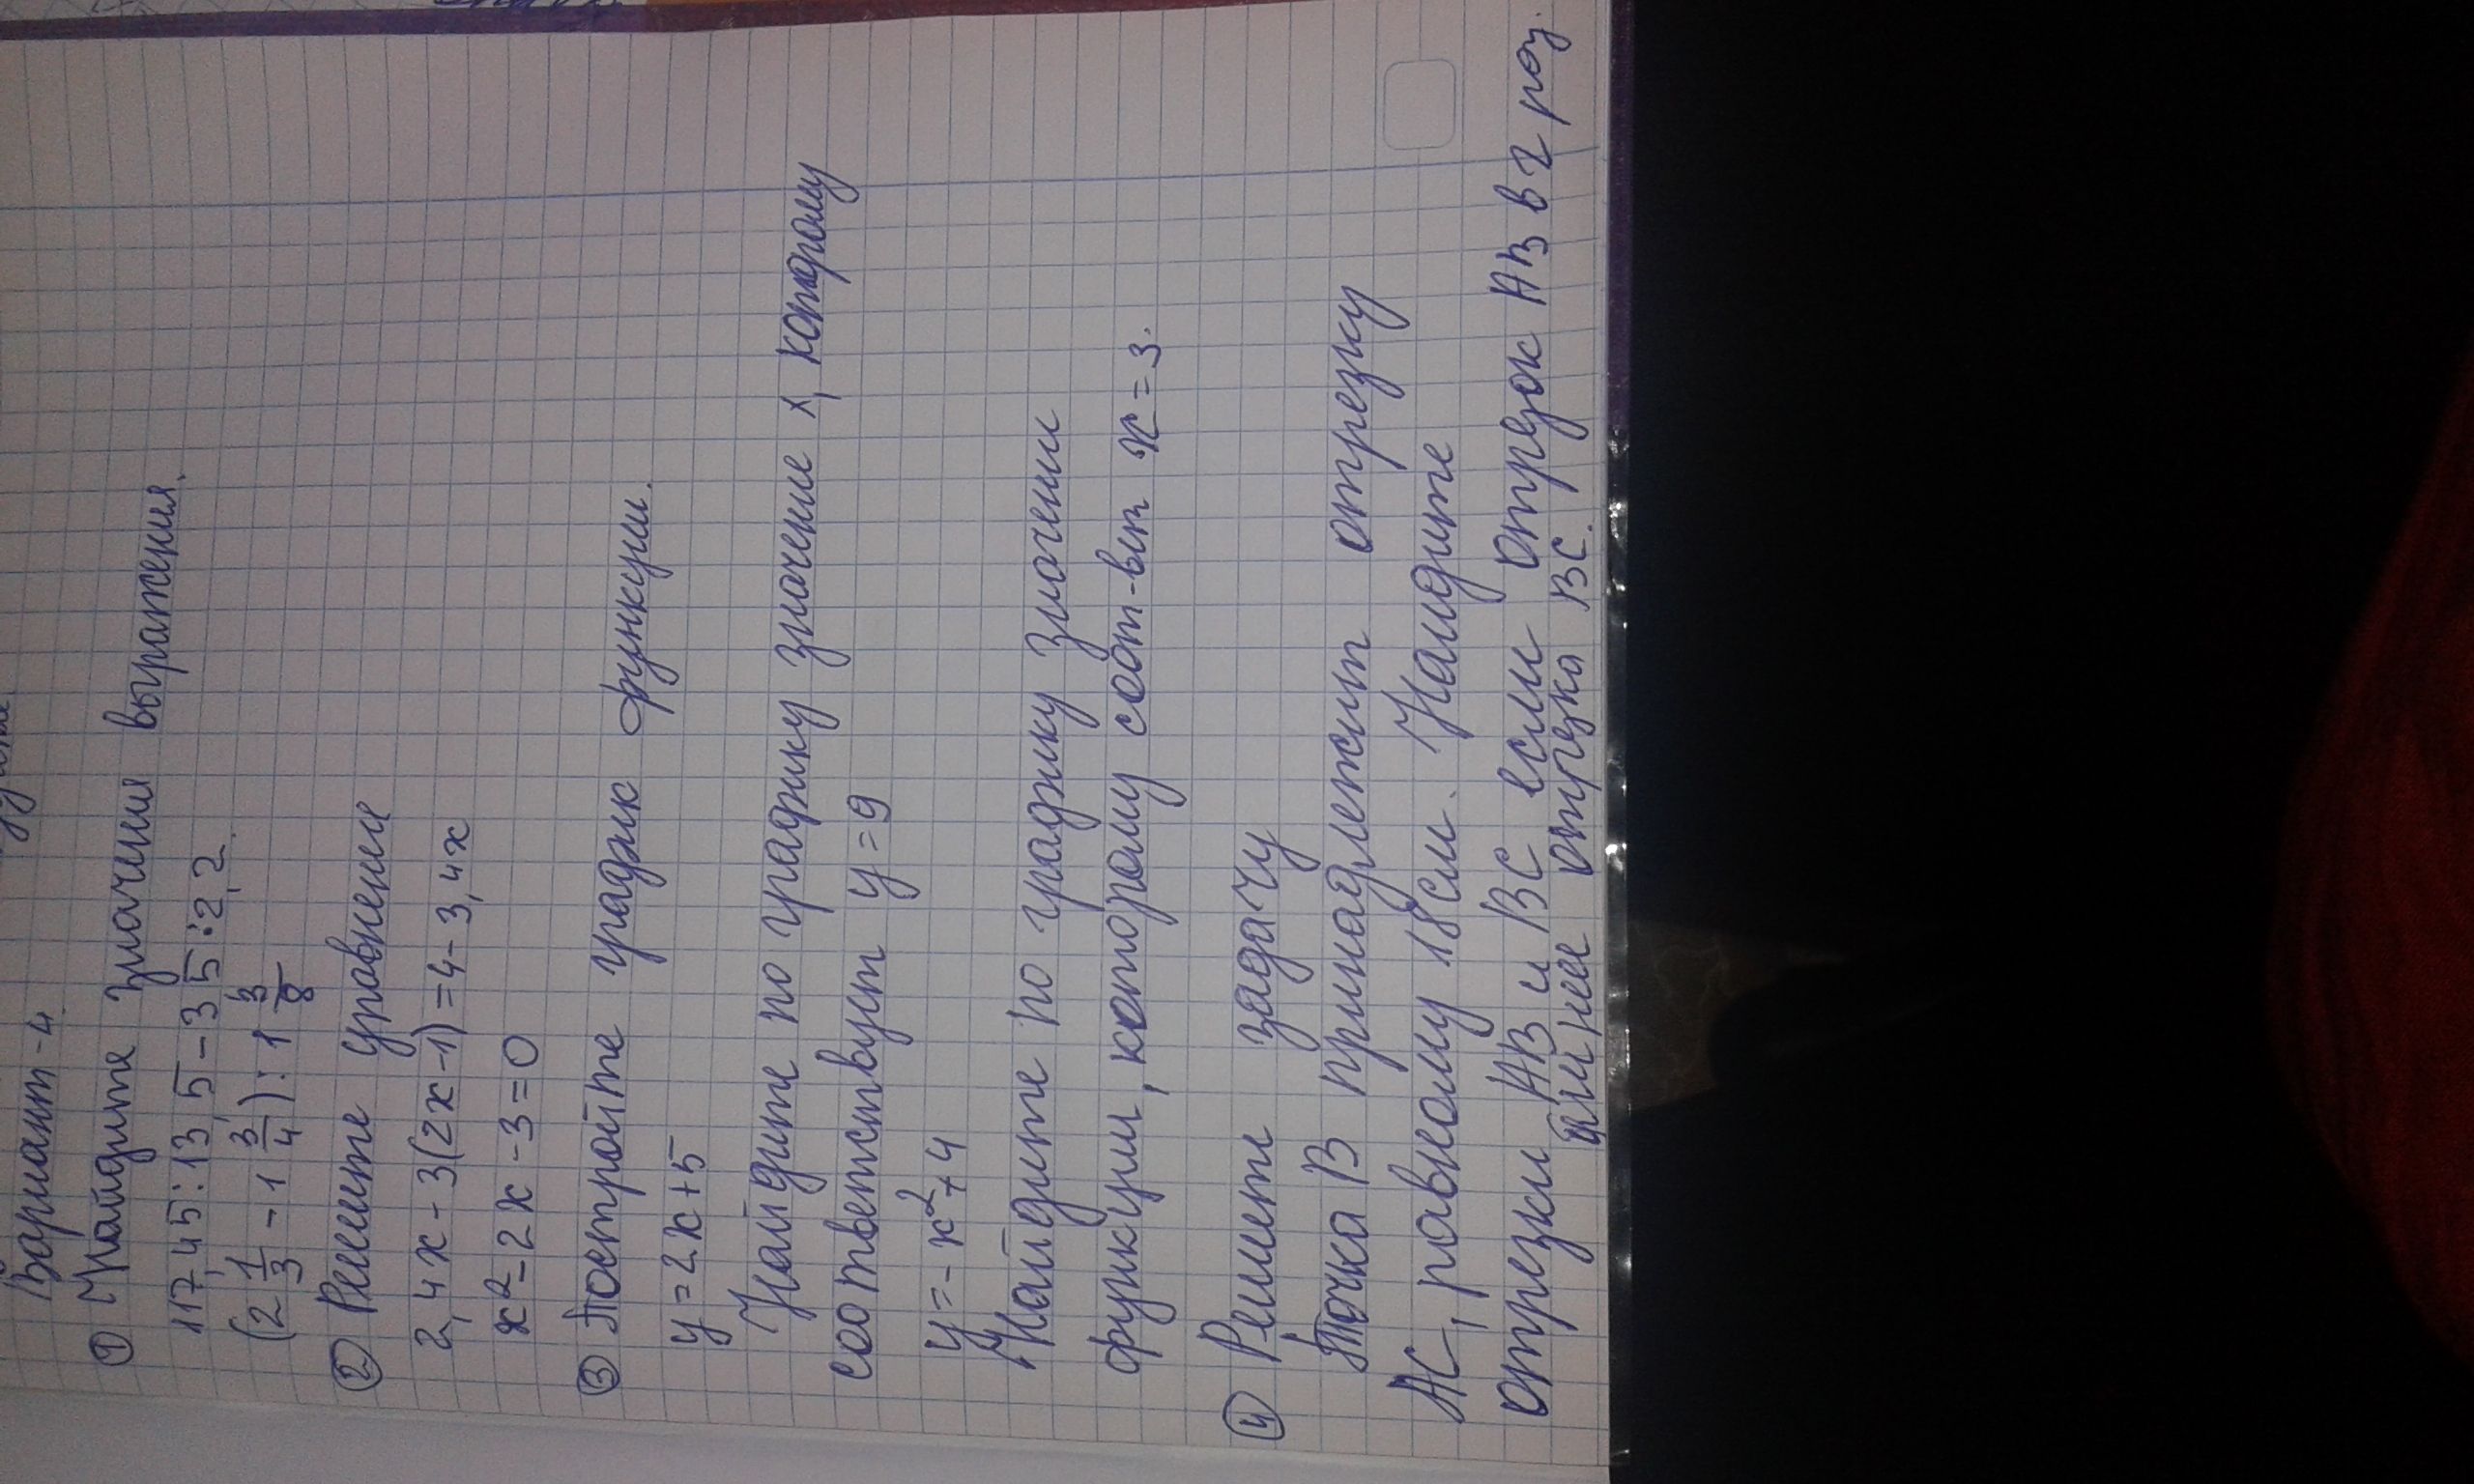 Вариант-4.
① Найдите значении выражения.
117,45:13,5-35:2,2.
(2 1/3 - 1 3/4): 1 3/8
② Решите уравнении
2,4x-3(2x-1)=4-3,4x
x²-2x-3=0
③ Постройте график функции.
y=2x+5
Найдите по графику значение x, которому
соответствует y=9
y=-x²+4
Найдите по графику значении
функции, которому соот-вет x=3.
④ Решити задачу
Точка В принадлежит отрезку
АС, равному 18см. Наидите
отрезки АВ и ВС если отрезок АВ в 2 раз.
длинее отрузка ВС.